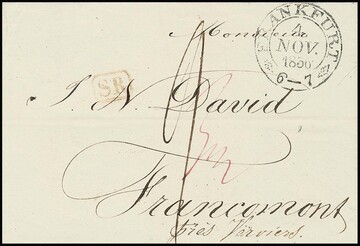 Monsieur
FRANKFURT
4
NOV.
1836
6-7
S.R.
J. N. David
Francomont
près Verviers.